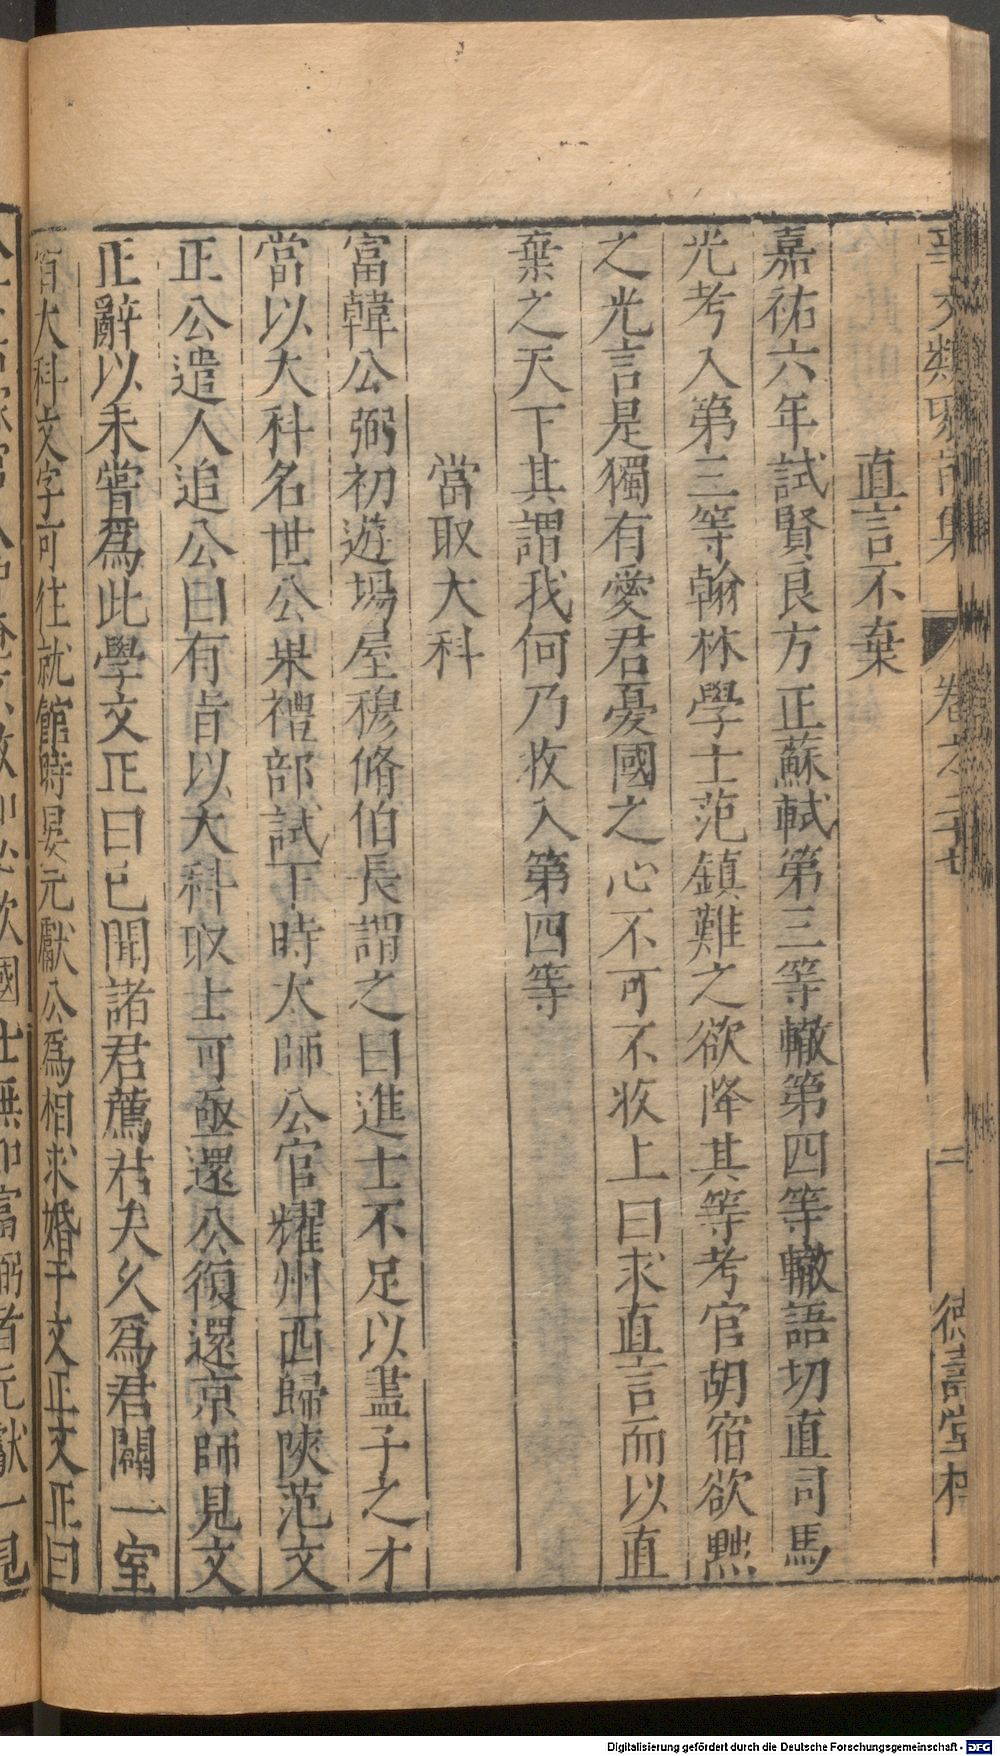 事文類聚前集 卷之二十七 二 德壽堂梓
直言不棄
嘉祐六年試賢良方正蘇軾第三等轍第四等轍語切直司馬
光考入第三等翰林學士范鎮難之欲降其等考官胡宿欲黜
之光言是獨有愛君憂國之心不可不收上曰求直言而以直
棄之天下其謂我何乃收入第四等
當取大科
富韓公弼初遊場屋穆脩伯長謂之曰進士不足以盡子之才
當以大科名世公果禮部試下時太師公官耀州西歸陝范文
正公遣人追公曰有旨以大科取士可亟還公復還京師見文
正辭以未嘗爲此學文正曰已聞諸君薦君矣久爲君闢一室
皆大科文字可往就館時晏元獻公爲相求婚于文正文正曰
國士無如富弼者元獻一見
Digitalisierung gefördert durch die Deutsche Forschungsgemeinschaft - DFG